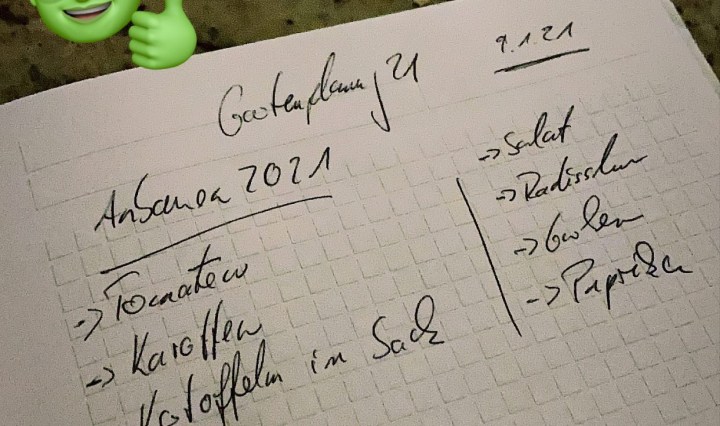 Gartenplanung 21
9.1.21
Anbauen 2021
-> Tomaten
-> Karotten
Kartoffeln im Sack
-> Salat
-> Radisschen
-> Gurken
-> Paprika